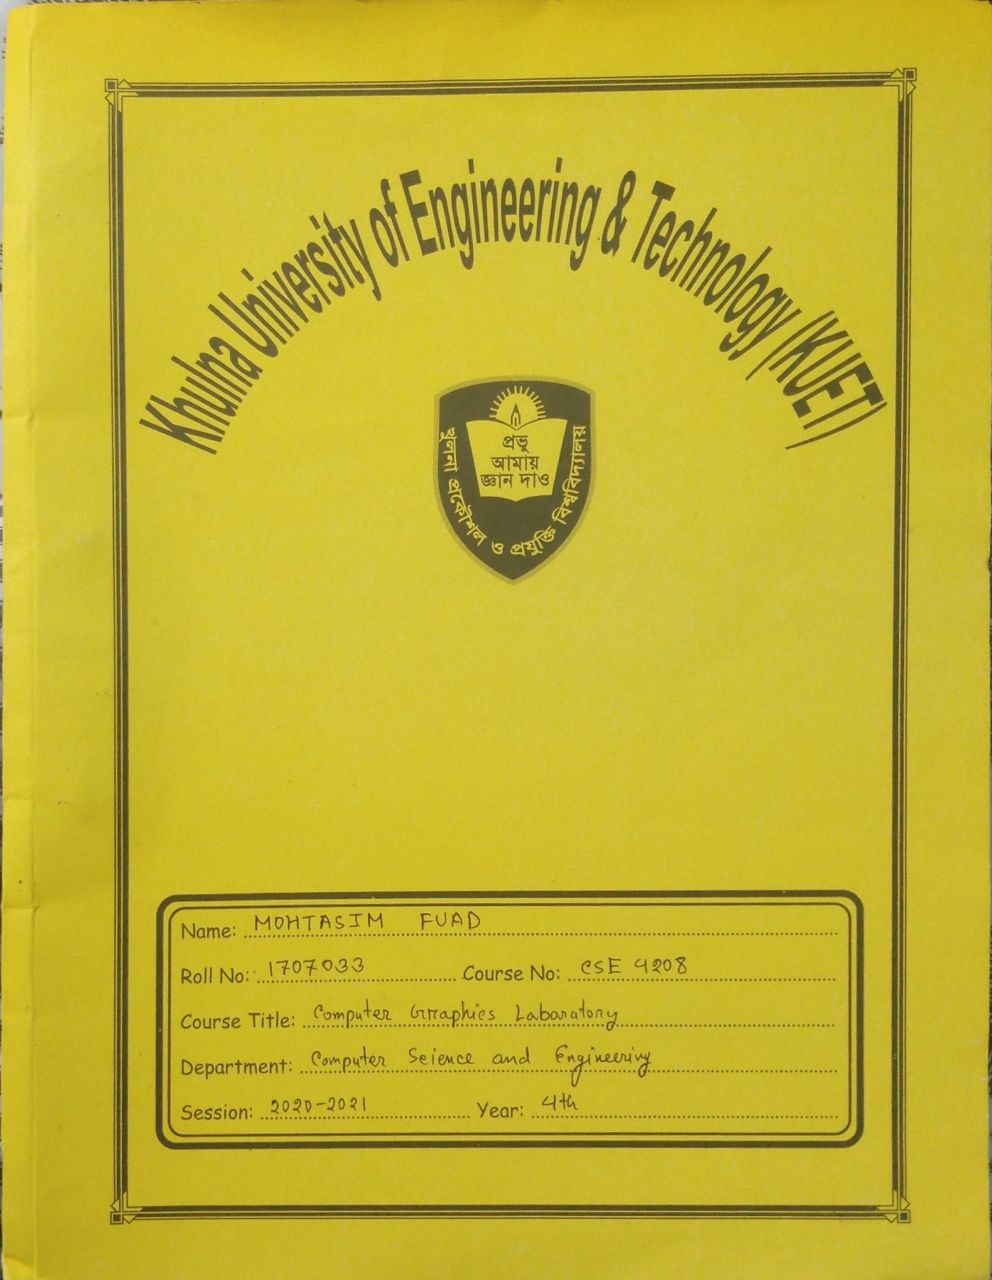 Khulna University of Engineering & Technology (KUET)
প্রভু
আমায়
জ্ঞান দাও
খুলনা প্রকৌশল ও প্রযুক্তি বিশ্ববিদ্যালয়
Name: MOHTASIM FUAD
Roll No: 1707033 Course No: CSE 4208
Course Title: Computer Graphics Laboratory
Department: Computer Science and Engineering
Session: 2020-2021 Year: 4th